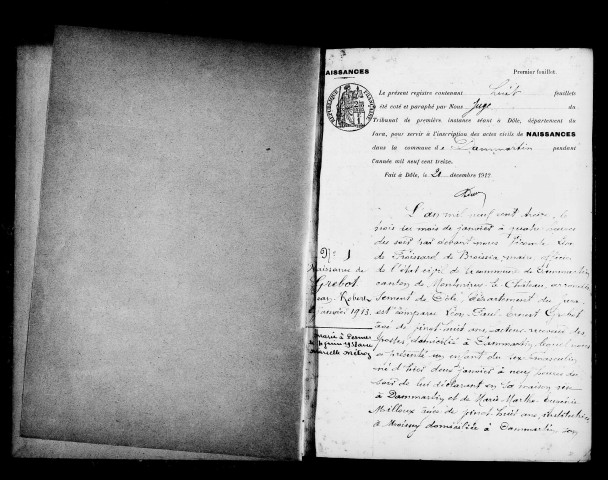 NAISSANCES
Premier feuillet.
RÉPUBLIQUE FRANÇAISE
Le présent registre contenant huit feuillets
été coté et paraphé par Nous Juge du
Tribunal de première instance séant à Dôle, département du
Jura, pour servir à l'inscription des actes civils de NAISSANCES
dans la commune de Dammartin pendant
l'année mil neuf cent treize.
Fait à Dôle, le 21 décembre 1912
N° 1
Naissance de
Grebot
Jean Robert
janvier 1913
marié à
L'an mil neuf cent treize, le
trois du mois de janvier à quatre heures
du soir par devant nous Vicomte Léon
de Froissard de Broissia, maire, officier
de l'état civil de la commune de Dammartin,
canton de Montmirey le Château, arrondis
sement de Dôle, département du Jura
est comparu Léon Paul Ernest Grebot
âgé de vingt huit ans
domicilié à Dammartin, lequel nous
a présenté un enfant du sexe masculin
né d'hier deux janvier à neuf heures du
soir de lui déclarant en sa maison sise
à Dammartin et de Marie Marthe
âgée de vingt huit ans institutrice
à domiciliée à Dammartin son